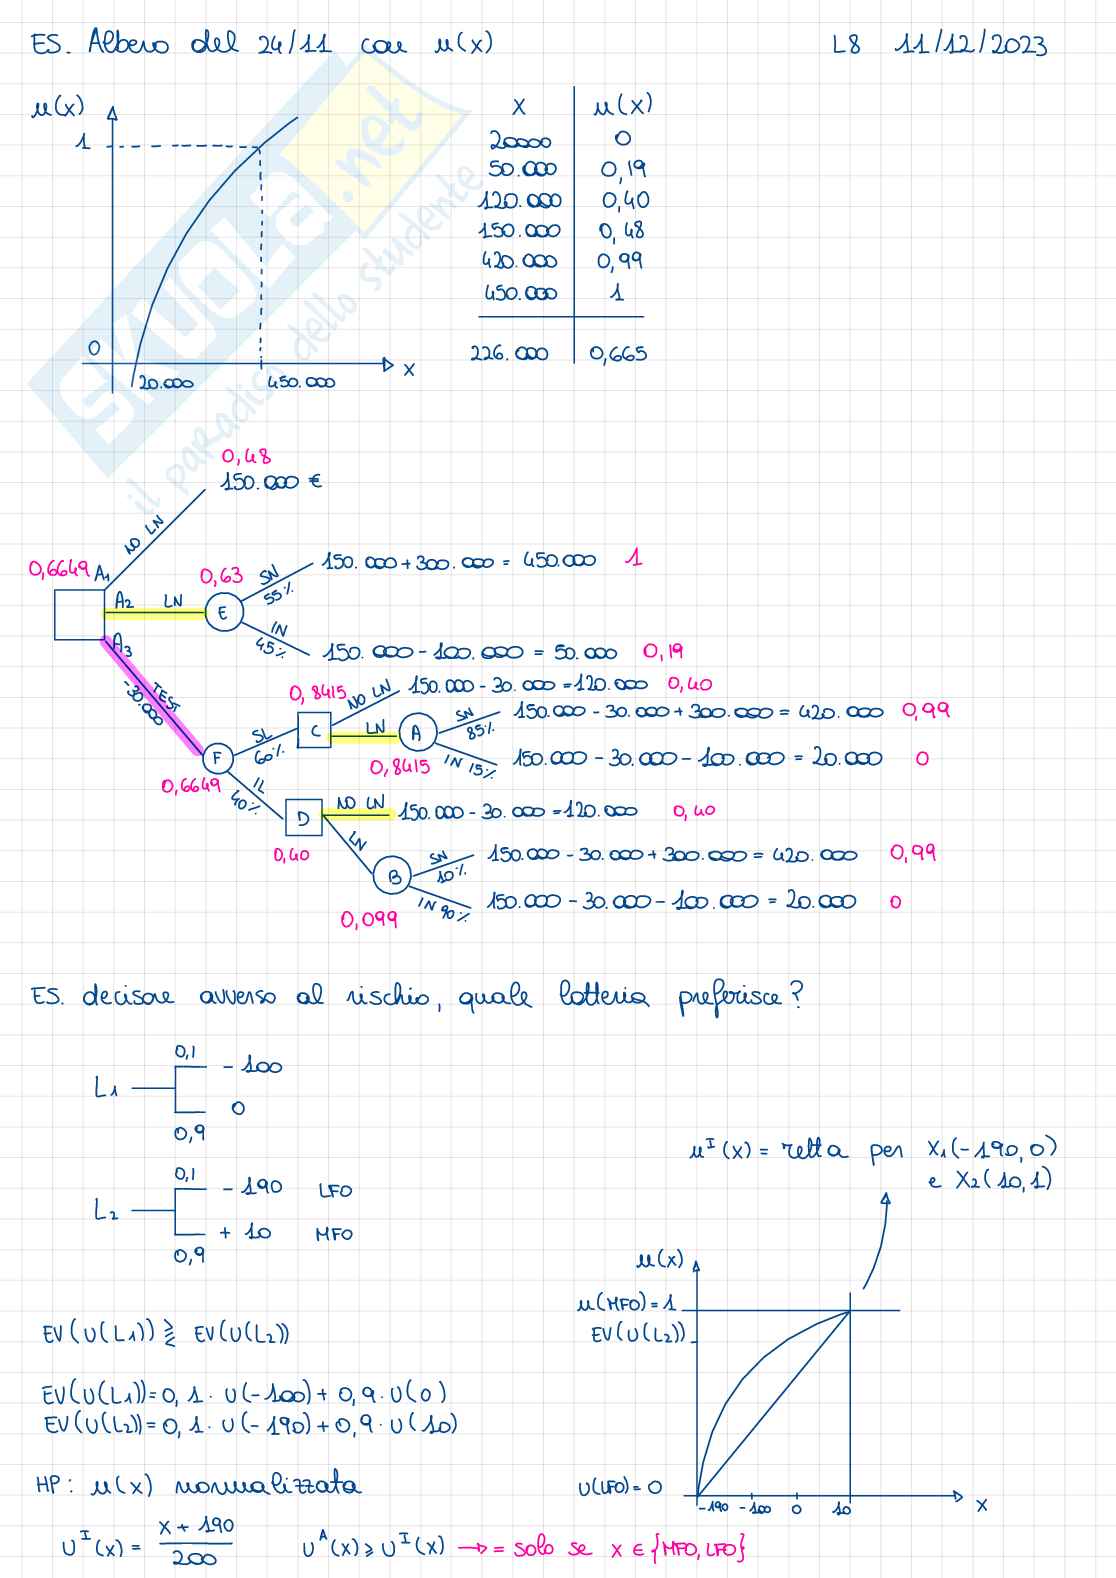 ES. Albero del 24/11 con u(x)
L8 11/12/2023
u(x)
1
0
20.000
450.000
x
x u(x)
20000 0
50.000 0,19
120.000 0,40
150.000 0,48
420.000 0,99
450.000 1
226.000 0,665
SKUOLA.net
il paradiso dello studente
0,48
150.000 €
NO LN
0,6649 A1
A2 LN
0,63
E
SN
55%
150.000 + 300.000 = 450.000 1
IN
45%
150.000 - 100.000 = 50.000 0,19
A3
TEST
-30.000
F
0,6649
SL
60%
0,8415
C
NO LN
150.000 - 30.000 = 120.000 0,40
LN
A
0,8415
SN
85%
150.000 - 30.000 + 300.000 = 420.000 0,99
IN 15%
150.000 - 30.000 - 100.000 = 20.000 0
IL
40%
D
0,40
NO LN
150.000 - 30.000 = 120.000 0,40
LN
B
0,099
SN
10%
150.000 - 30.000 + 300.000 = 420.000 0,99
IN 90%
150.000 - 30.000 - 100.000 = 20.000 0
ES. decisore avverso al rischio, quale lotteria preferisce?
L1
0,1
- 100
0
0,9
L2
0,1
- 190 LFO
+ 10 MFO
0,9
u^I(x) = retta per X1(-190,0)
e X2(10,1)
u(x)
u(MFO) = 1
EV(U(L2))
U(LFO) = 0
-190 -100 0 10
x
EV(U(L1)) ⪌ EV(U(L2))
EV(U(L1)) = 0,1 · U(-100) + 0,9 · U(0)
EV(U(L2)) = 0,1 · U(-190) + 0,9 · U(10)
HP: u(x) normalizzata
U^I(x) = (x + 190) / 200
U^A(x) ⩾ U^I(x) → = solo se x ∈ {MFO, LFO}